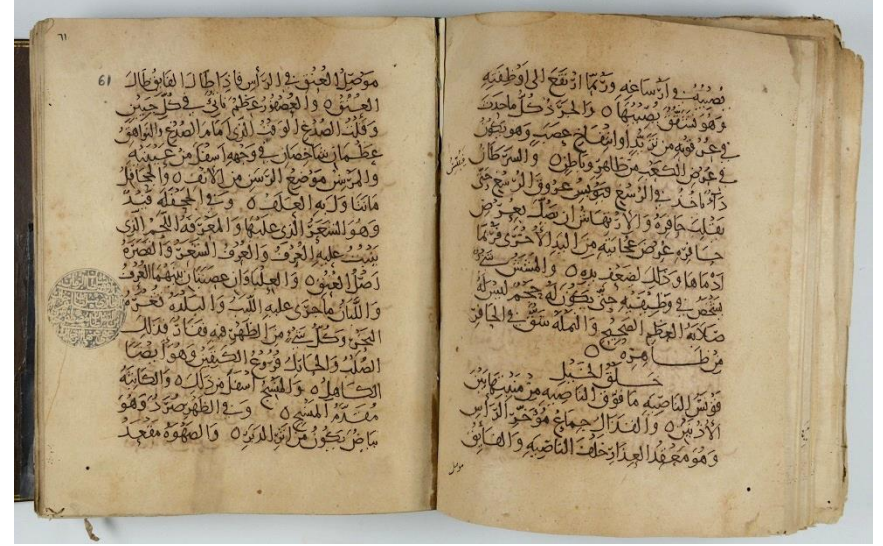 يصيبه في ارساغه وربما ارتفع الى اوظفته
وهو تشقق يصيبها ه والجرد كل ماحدث
في عرقوبه من تزيد او انتفاخ عصب وهو يكون
في عرض الكعب من ظاهر وباطن ه والسرطان
داء ياخذ في الرسغ فييبس عروق الرسغ حتى
يقلب حافره والارتهاش ان يصك بعرض
حافره عرض عجايته من اليد الاخرى فربما
ادماها وذلك لضعف يده ه والمشش شيء
يشخص في وظيفيه حتى يكون له حجم ليس له
صلابة العظم الصحيح والنملة شق في الحافر
من ظاهره ه
خلق الخيل
قونس الناصية ما فوق الناصية من منبتها بين
الاذنين ه والقذال جماع مؤخر الراس
وهو معقد العذار خلف الناصية والفائق
موصل
٦١
61
موصل العنق في الراس فاذا طال الفائق طال
العنق ه والعصفور عظم ناتئ في كل جبين
وقلت الصدغ الوقب الذي امام الصدغ والنواهق
عظمان شاخصان في وجهه اسفل من عينيه
والمرسن موضع الرسن من الانف ه والجحافل
ما تناول به العلف ه وفي الجحفلة فيد
وهو الشعر الذي عليها والمعرفة اللحم الذي
ينبت عليه العرف والعرف الشعر والقصرة
اصل العنق ه والعلباوان عصبتان بينهما العرف
واللبان ما جرى عليه اللبب والبلدة ثغرة
النحر وكل شيء من الظهر فيه فقار فذلك
الصلب والحارك فروع الكتفين وهو ايضا
الكاهل ه والمنسج اسفل من ذلك ه والكاثبة
مقدم المنسج ه وفي الظهر صرد وهو
بياض يكون من اثر الدبر ه والصهوة مقعد